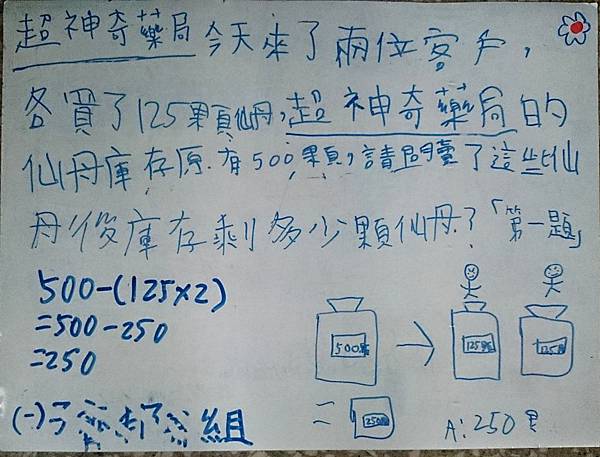 超神奇藥局今天來了兩位客戶,
各買了125顆仙丹,超神奇藥局的
仙丹庫存原有500顆,請問賣了這些仙
丹後庫存剩多少顆仙丹?「第一題」
500-(125×2)
=500-250
=250
500顆
125顆
125顆
=
250顆
A:250顆
(一)
組